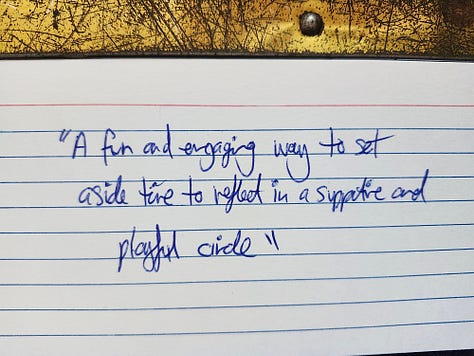 "A fun and engaging way to set
aside time to reflect in a supportive and
playful circle"